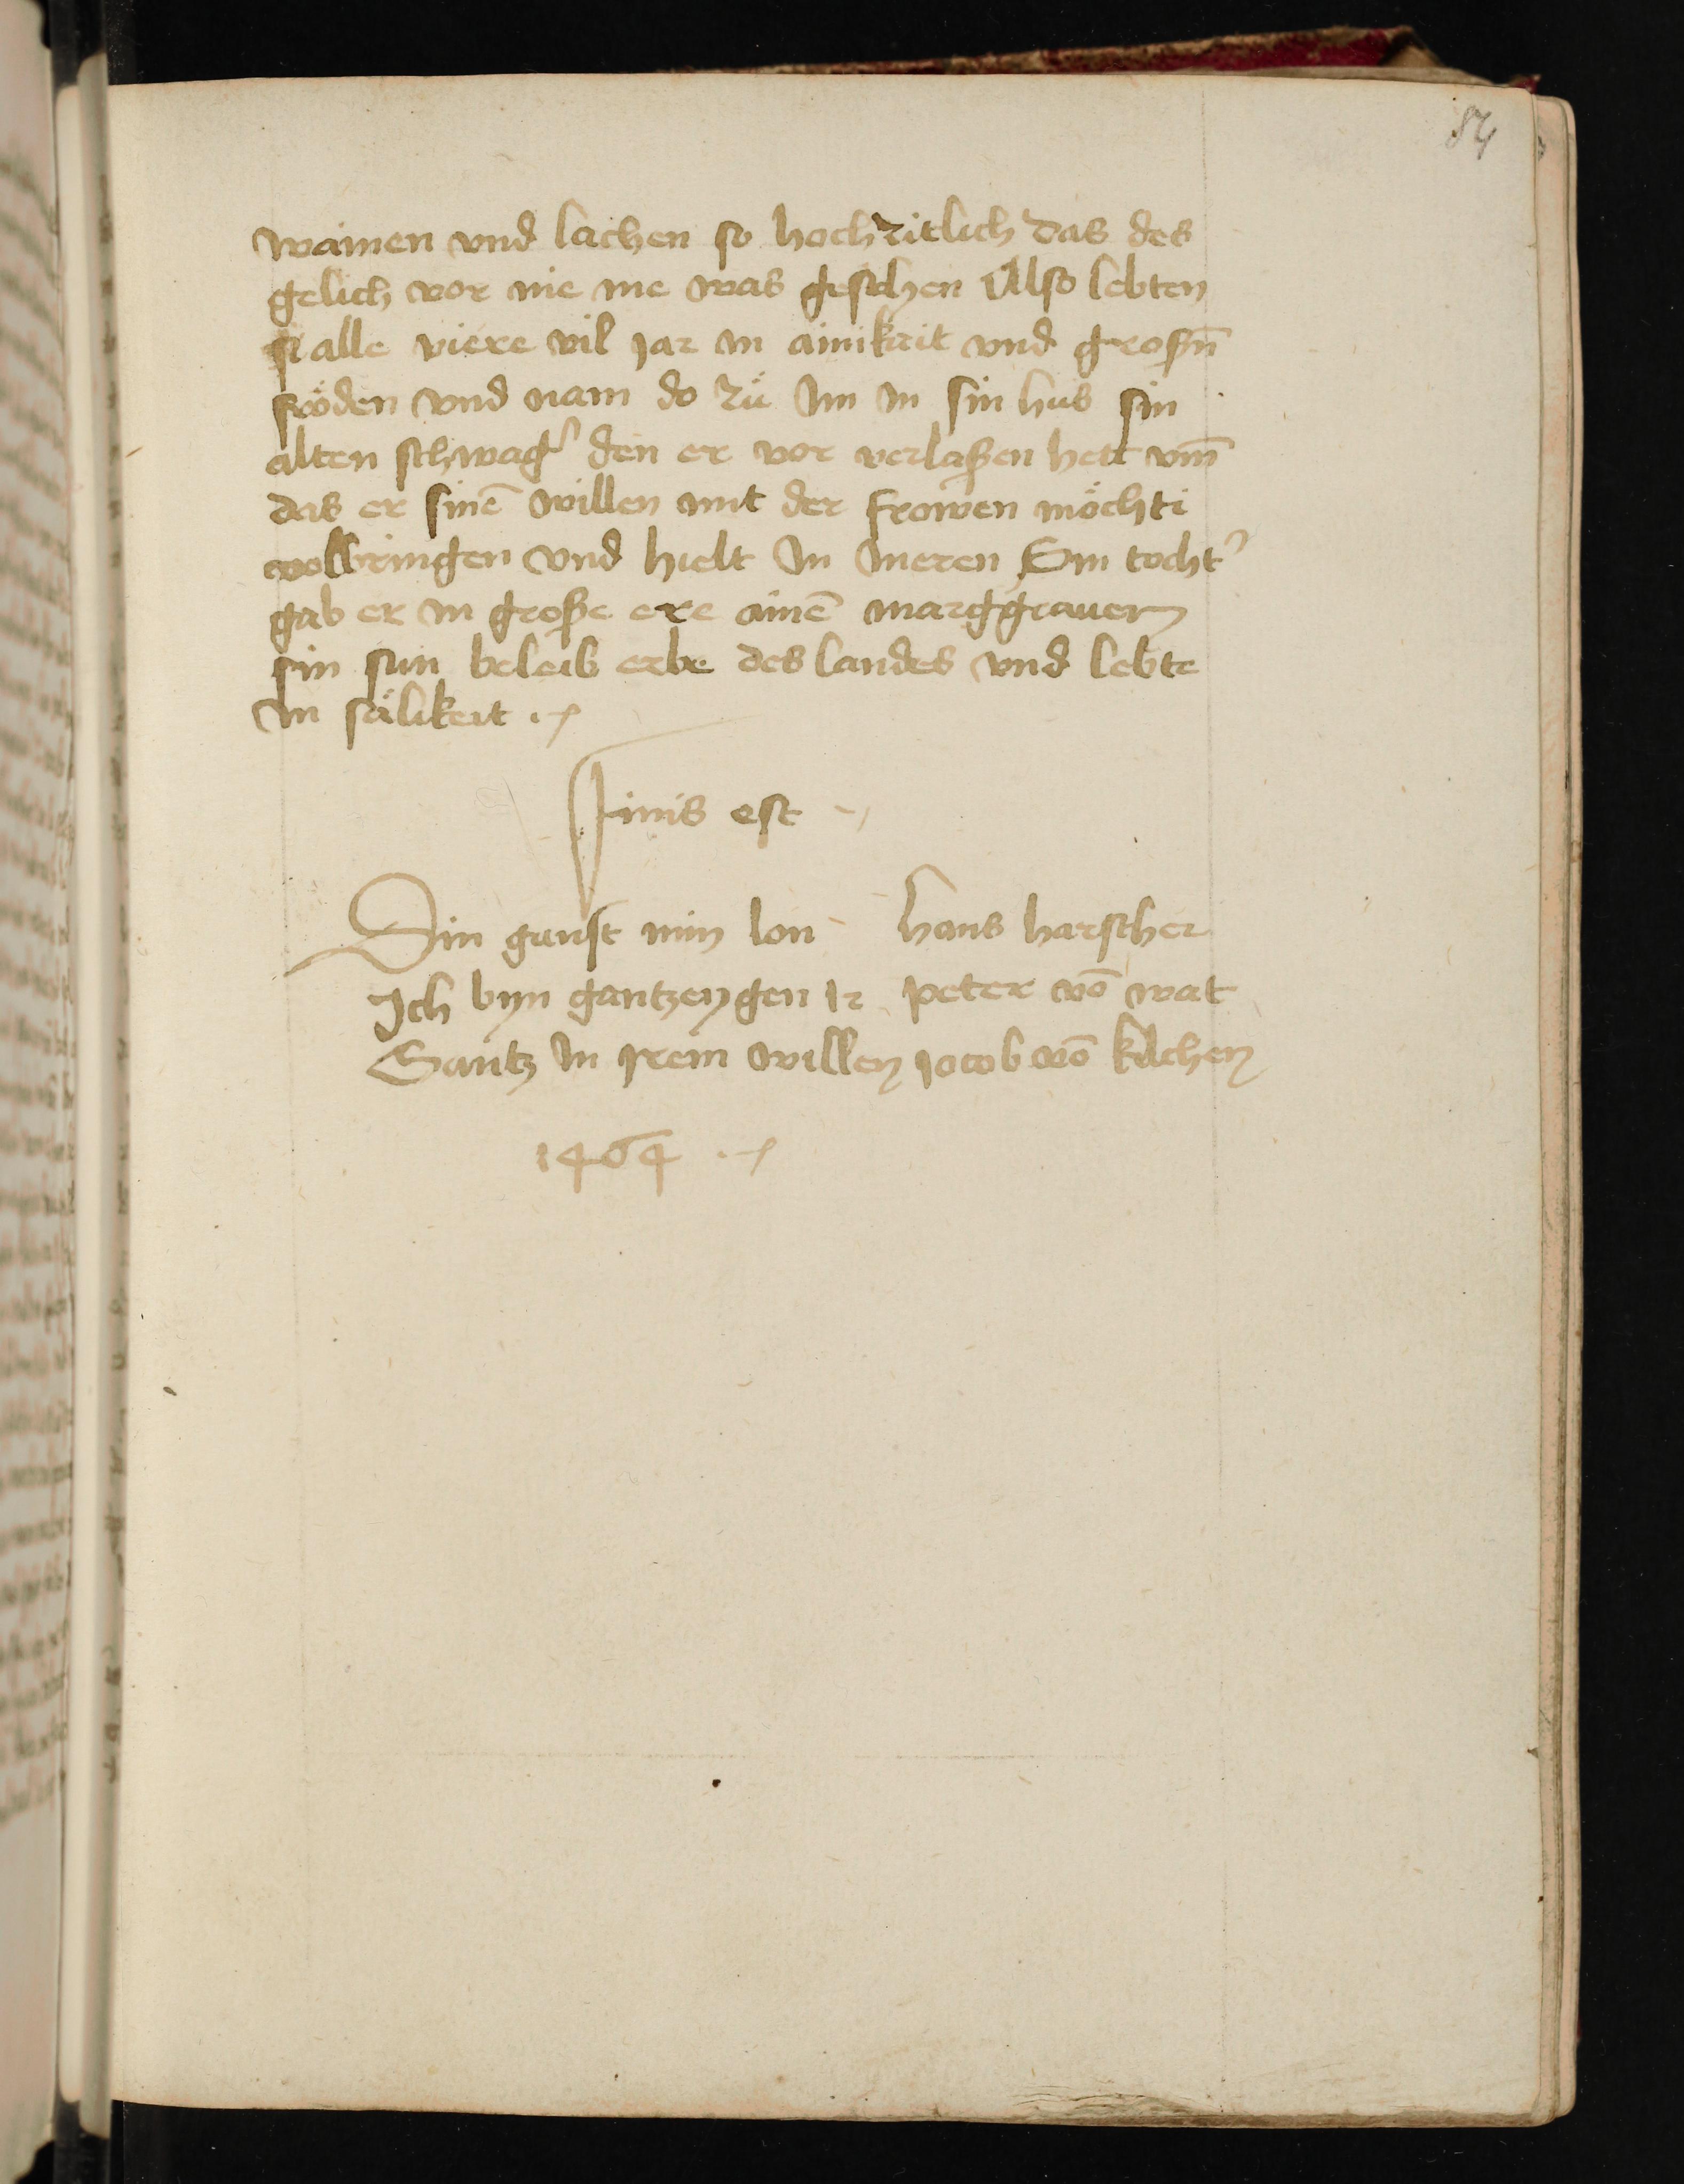 84
wainen vnd lachen so hochzitlich das des
gelich vor nie me was geschen Also lebten
si alle viere vil jar in ainikait vnd großn̄
fröden vnd nam do zů Im in sin hus sin
alten schwag' den er vor verlaßen hett vm̄
das er sinē willen mit der frowen möchti
vollbringen vnd hielt In In eren Sin tocht'
gab er in große ere ainē marggrauen
sin sun beleib erbe des landes vnd lebte
In sälikeit
Finis est
Din gunst min lon hans harscher
Ich byn gantz eygen Ir peter vō wat
Gantz In Irem willen Jacob vō kilchen
1464